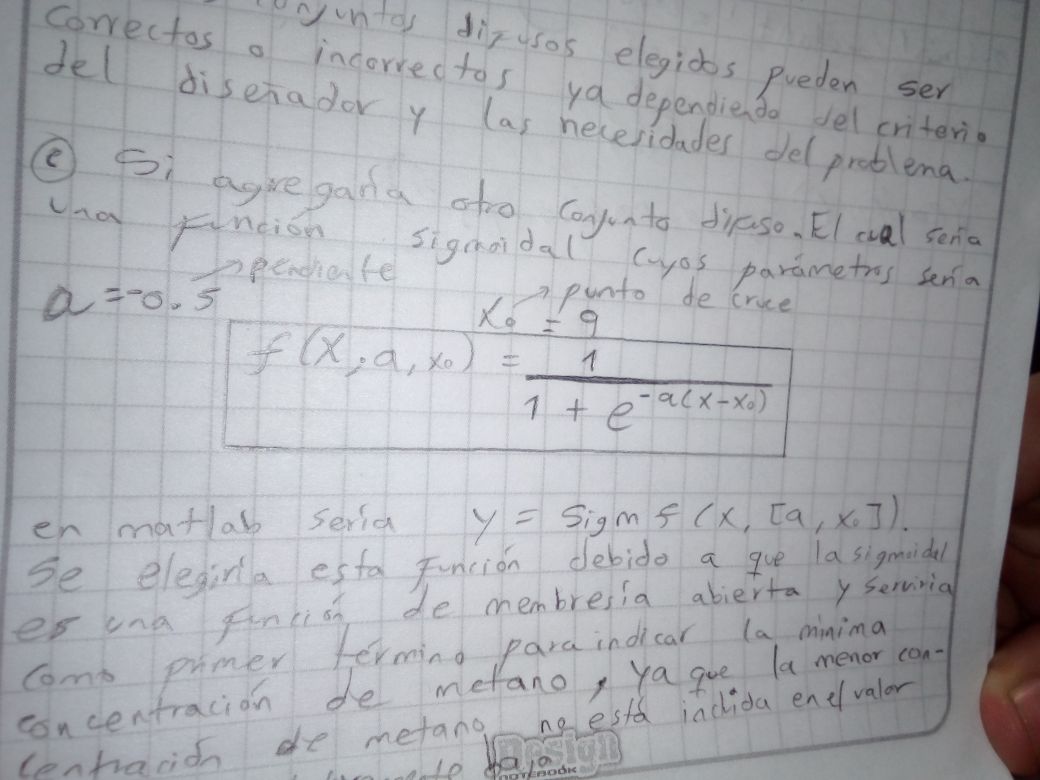 conjuntos difusos elegidos pueden ser
correctos o incorrectos ya dependiendo del criterio
del diseñador y las necesidades del problema.
ⓔ Si agregaría otro conjunto difuso. El cual sería
una función sigmoidal cuyos parámetros sería
a = -0.5 → pendiente x₀ = 9 → punto de cruce
f(x; a, x₀) = 1 / (1 + e^(-a(x-x₀)))
en matlab sería y = Sigmf(x, [a, x₀]).
Se elegiría esta función debido a que la sigmoidal
es una función de membresía abierta y serviría
como primer término para indicar la mínima
concentración de metano, ya que la menor con-
centración de metano no está incluida en el valor
baja
Design
NOTEBOOK